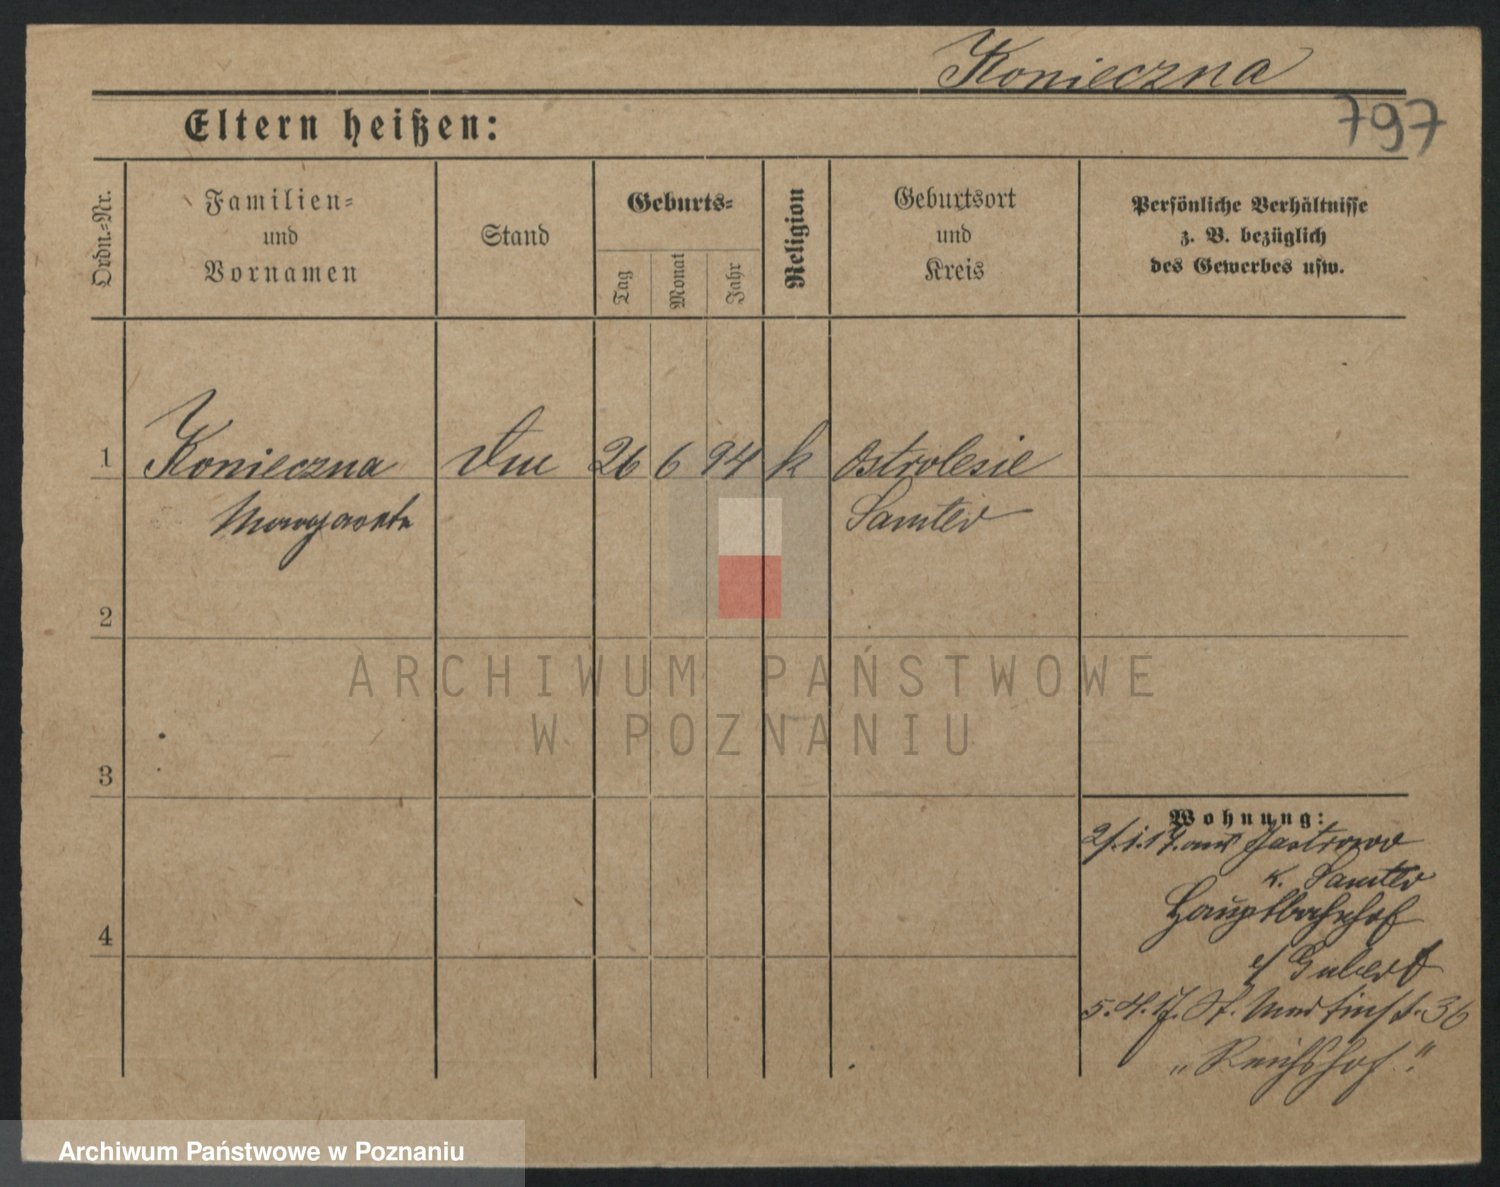 Konieczna
Eltern heißen:
797
Ordn.=Nr.
Familien=
und
Vornamen
Stand
Geburts=
Tag
Monat
Jahr
Religion
Geburtsort
und
Kreis
Persönliche Verhältnisse
z. B. bezüglich
des Gewerbes usw.
1 Konieczna 26 6 94 k Ostrolesie
Margarete Samter
2
3
4
Wohnung:
2.1.17. aus
K. Samter
Hauptbahnhof
5.4.17. St. Martinst. 36
„Reichshof."
ARCHIWUM PAŃSTWOWE
W POZNANIU
Archiwum Państwowe w Poznaniu